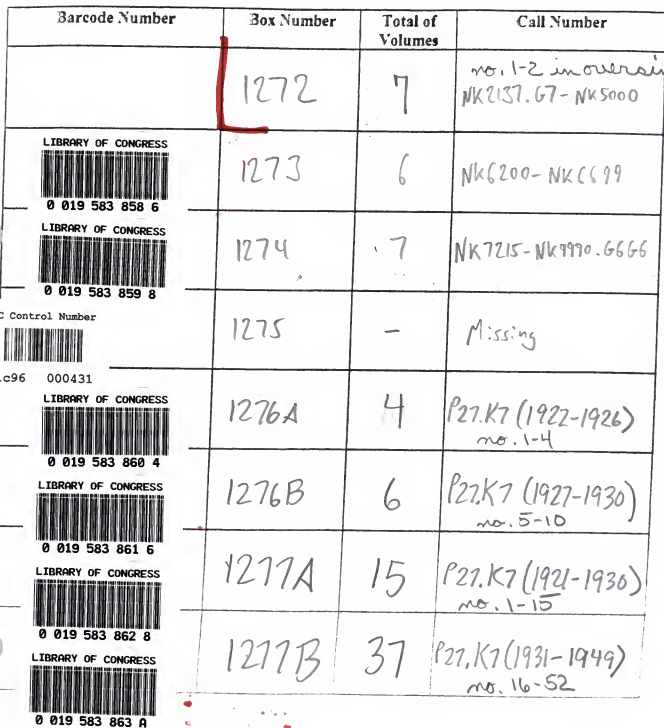 Barcode Number Box Number Total of Volumes Call Number
no. 1-2 in
1272 7 NK2137.G7-NK5000
LIBRARY OF CONGRESS
0 019 583 858 6
1273 6 NK6200-NK6699
LIBRARY OF CONGRESS
0 019 583 859 8
1274 7 NK7215-NK9990.G6G6
C Control Number
1275 - Missing
.c96 000431
LIBRARY OF CONGRESS
0 019 583 860 4
1276A 4 P27.K7 (1922-1926)
no. 1-4
LIBRARY OF CONGRESS
0 019 583 861 6
1276B 6 P27.K7 (1927-1930)
no. 5-10
LIBRARY OF CONGRESS
0 019 583 862 8
1277A 15 P27.K7 (1921-1930)
no. 1-15
LIBRARY OF CONGRESS
0 019 583 863 A
1277B 37 P27.K7 (1931-1949)
no. 16-52